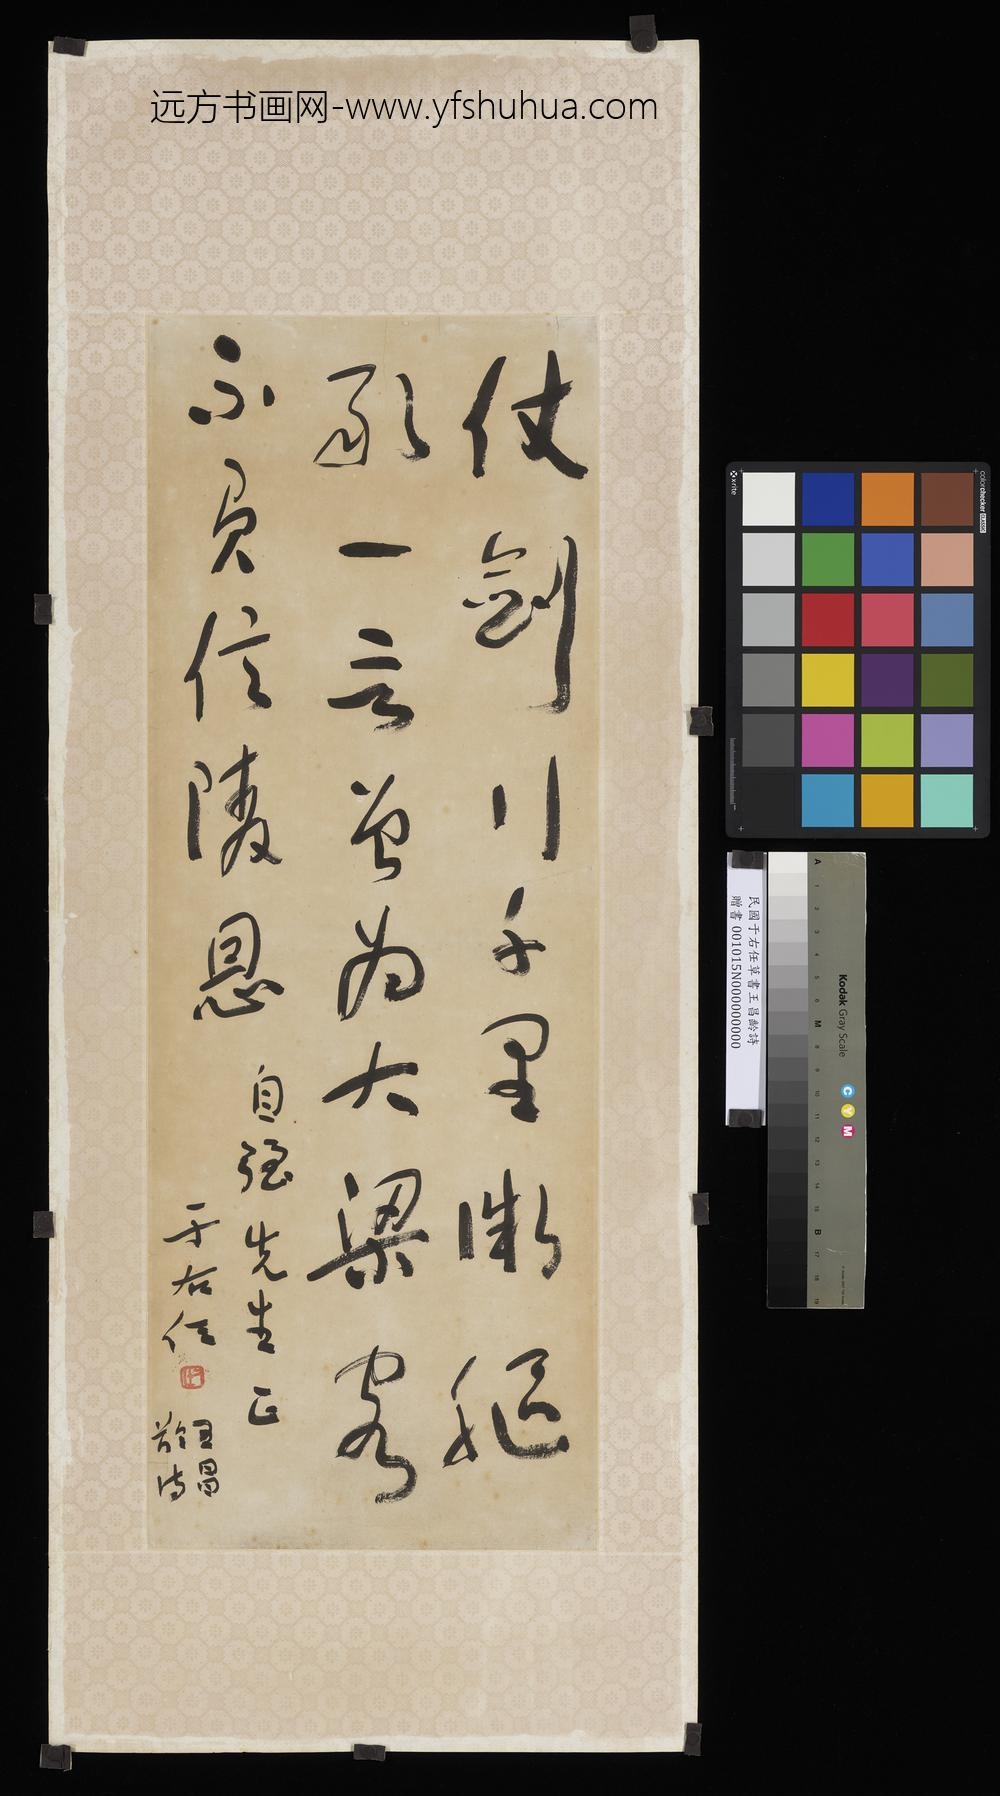 远方书画网-www.yfshuhua.com
仗劍行千里微軀
敢一言曾為大梁客
不負信陵恩
自強先生正
于右任
王昌
齡詩
x-rite
colorchecker CLASSIC
民國于右任草書王昌齡詩
贈書 001015N000000000
Kodak Gray Scale
C Y M
A 1 2 3 4 5 6 M 8 9 10 11 12 13 14 15 B 17 18 19